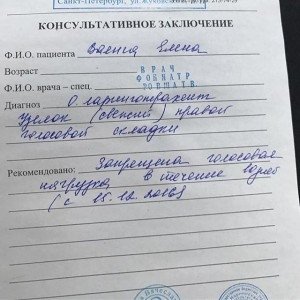 Санкт-Петербург, ул.Жуковск
КОНСУЛЬТАТИВНОЕ ЗАКЛЮЧЕНИЕ
Ф.И.О. пациента Ваенга Елена
Возраст
ВРАЧ
ФОНИАТР
Ф.И.О. врача – спец.
Диагноз О. ларинготрахеит
узелок (свежий) правой
голосовой складки
Рекомендовано: Запрещена голосовая
нагрузка в течение
(с 15.12.2016)